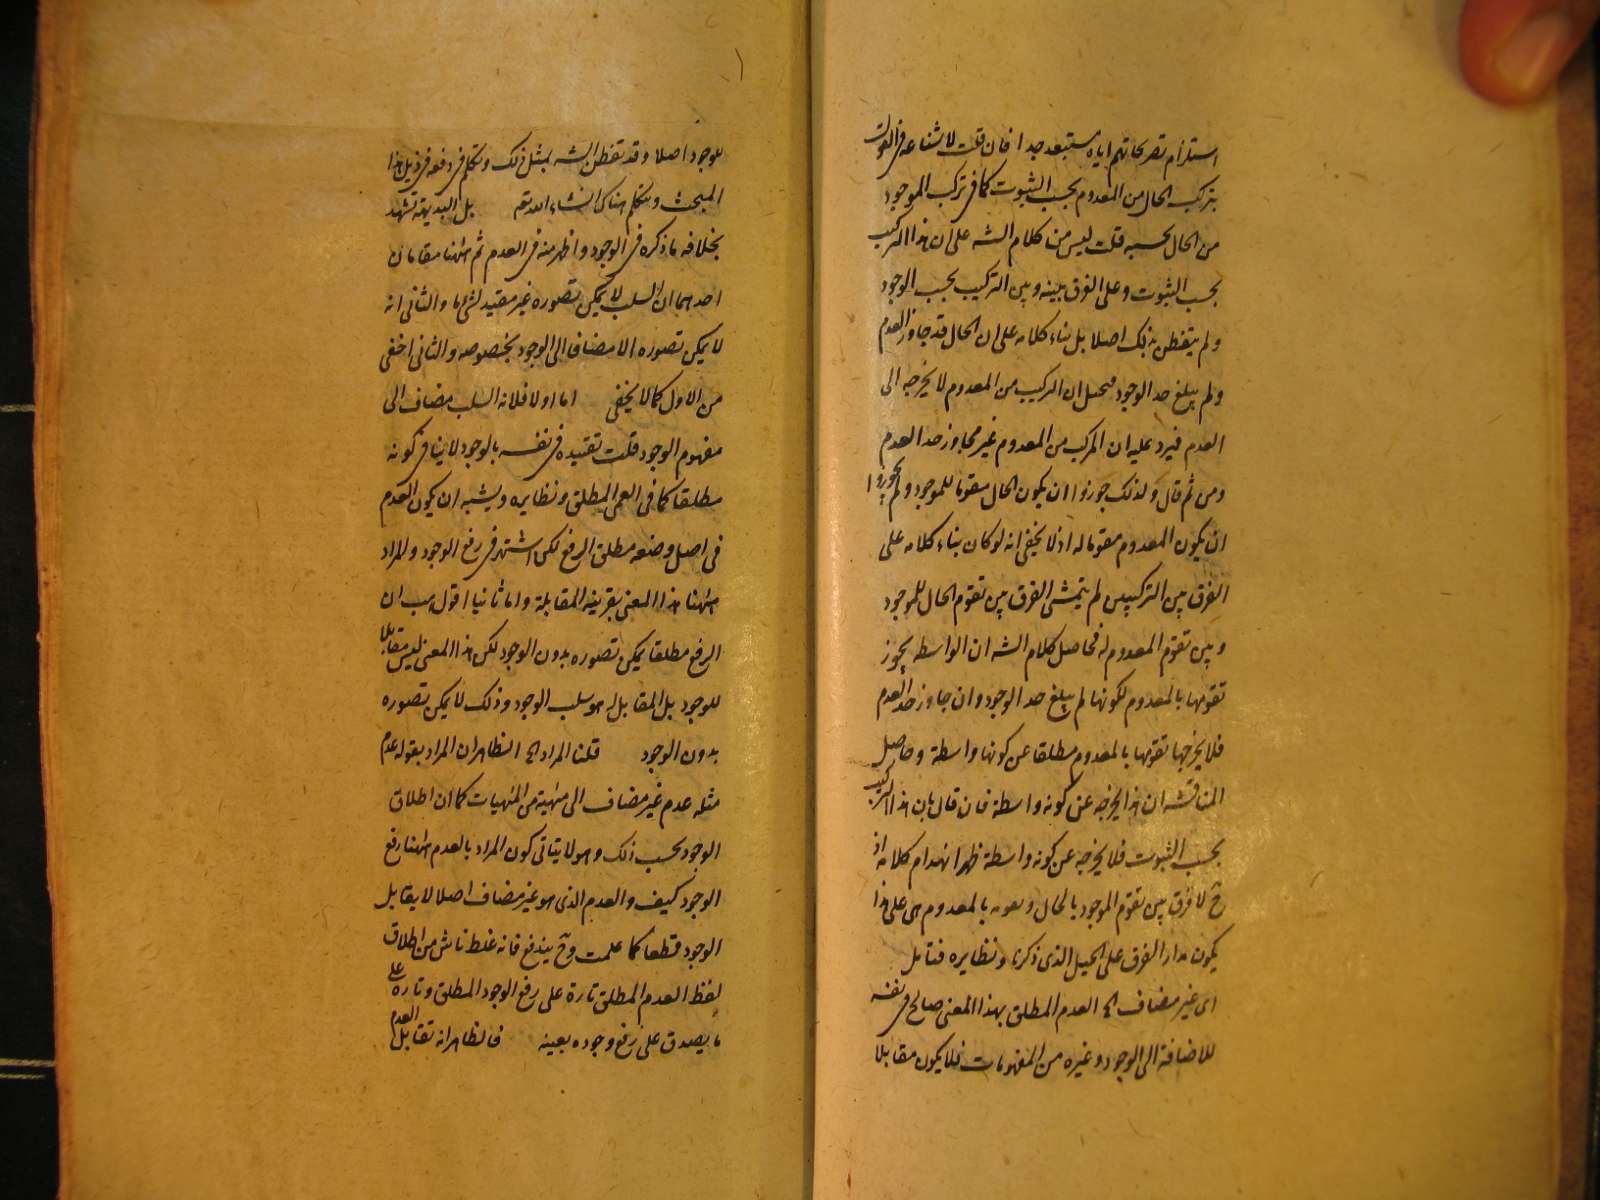 استلزام تصريحاتهم اياه مستبعد جدا فان قلت لا شناعة في القول
بتركب الحال من المعدوم بحسب الثبوت كما في تركب الموجود
من الحال بحسبه قلت ليس من كلام الشه على ان هذا التركيب
بحسب الثبوت وعلى الفرق بينه وبين التركيب بحسب الوجود
ولم يتفطن بذلك اصلا بل بناء كلامه على ان الحال قد جاوز العدم
ولم يبلغ حد الوجود فحصل ان التركيب من المعدوم لا يخرجه الى
العدم فيرد عليه ان المركب من المعدوم غير مجاوز حد العدم
ومن ثم قال ولذلك جوزوا ان يكون الحال مقوما للموجود ولم يجوزوا
ان يكون المعدوم مقوما له اذ لا يخفى انه لو كان بناء كلامه على
الفرق بين التركيبين لم يتمشى الفرق بين تقوم الحال للموجود
وبين تقوم المعدوم له فحاصل كلام الشه ان الواسطه يجوز
تقومها بالمعدوم لكونها لم يبلغ حد الوجود وان جاوز حد العدم
فلا يخرجها تقومها بالمعدوم مطلقا عن كونها واسطة وحاصل
المناقشه ان هذا يخرجه عن كونه واسطة فان قال بان هذا التركيب
بحسب الثبوت فلا يخرجه عن كونه واسطة ظهر انهدام كلامه اذ
ح لا فرق بين تقوم الموجود بالحال وتقومه بالمعدوم على هذا
يكون مدار الفرق على الحيل الذي ذكرنا ونظايره فتامل
اى غير مضاف الخ العدم المطلق بهذا المعنى صالح في نفسه
للاضافة الى الوجود وغيره من المفهومات فلا يكون مقابلا
للوجود اصلا وقد تفطن الشه بمثل ذلك وتكلم في دفعه في ذيل هذا
المبحث وستكلم هناك انشاء الله تعه بل البديهة تشهد
بخلافه ما ذكره في الوجود واظهر منه في العدم ثم ههنا مقامان
احدهما ان السلب لا يمكن تصوره غير مقيد لشئ ما والثانى انه
لا يمكن تصوره الا مضافا الى الوجود بخصوصه والثانى اخفى
من الاول كما لا يخفى اما اولا فلانه السلب مضاف الى
مفهوم الوجود قلت تقييده في نفسه بالوجود لا ينافى كونه
مطلقا كما في العمى المطلق ونظايره ويشبه ان يكون العدم
في اصل وضعه مطلق الرفع لكن اشتهر في رفع الوجود والمراد
ههنا هذا المعنى بقرينة المقابلة واما ثانيا اقول هب ان
الرفع مطلقا يمكن تصوره بدون الوجود لكن هذا المعنى ليس مقابلا
للوجود بل المقابل له هو سلب الوجود وذلك لا يمكن تصوره
بدون الوجود قلنا المراد الخ الظاهر ان المراد بقوله عدم
مثله عدم غير مضاف الى مهية من المهيات كما ان اطلاق
الوجود بحسب ذلك وهو لا يتاتى كون المراد بالعدم ههنا رفع
الوجود كيف والعدم الذى هو غير مضاف اصلا لا يقابل
الوجود قطعا كما علمت وح يندفع فانه غلط ناش من اطلاق
لفظ العدم المطلق تارة على رفع الوجود المطلق وتاره على
ما يصدق على رفع وجوده بعينه فالظاهر انه تقابل العدم